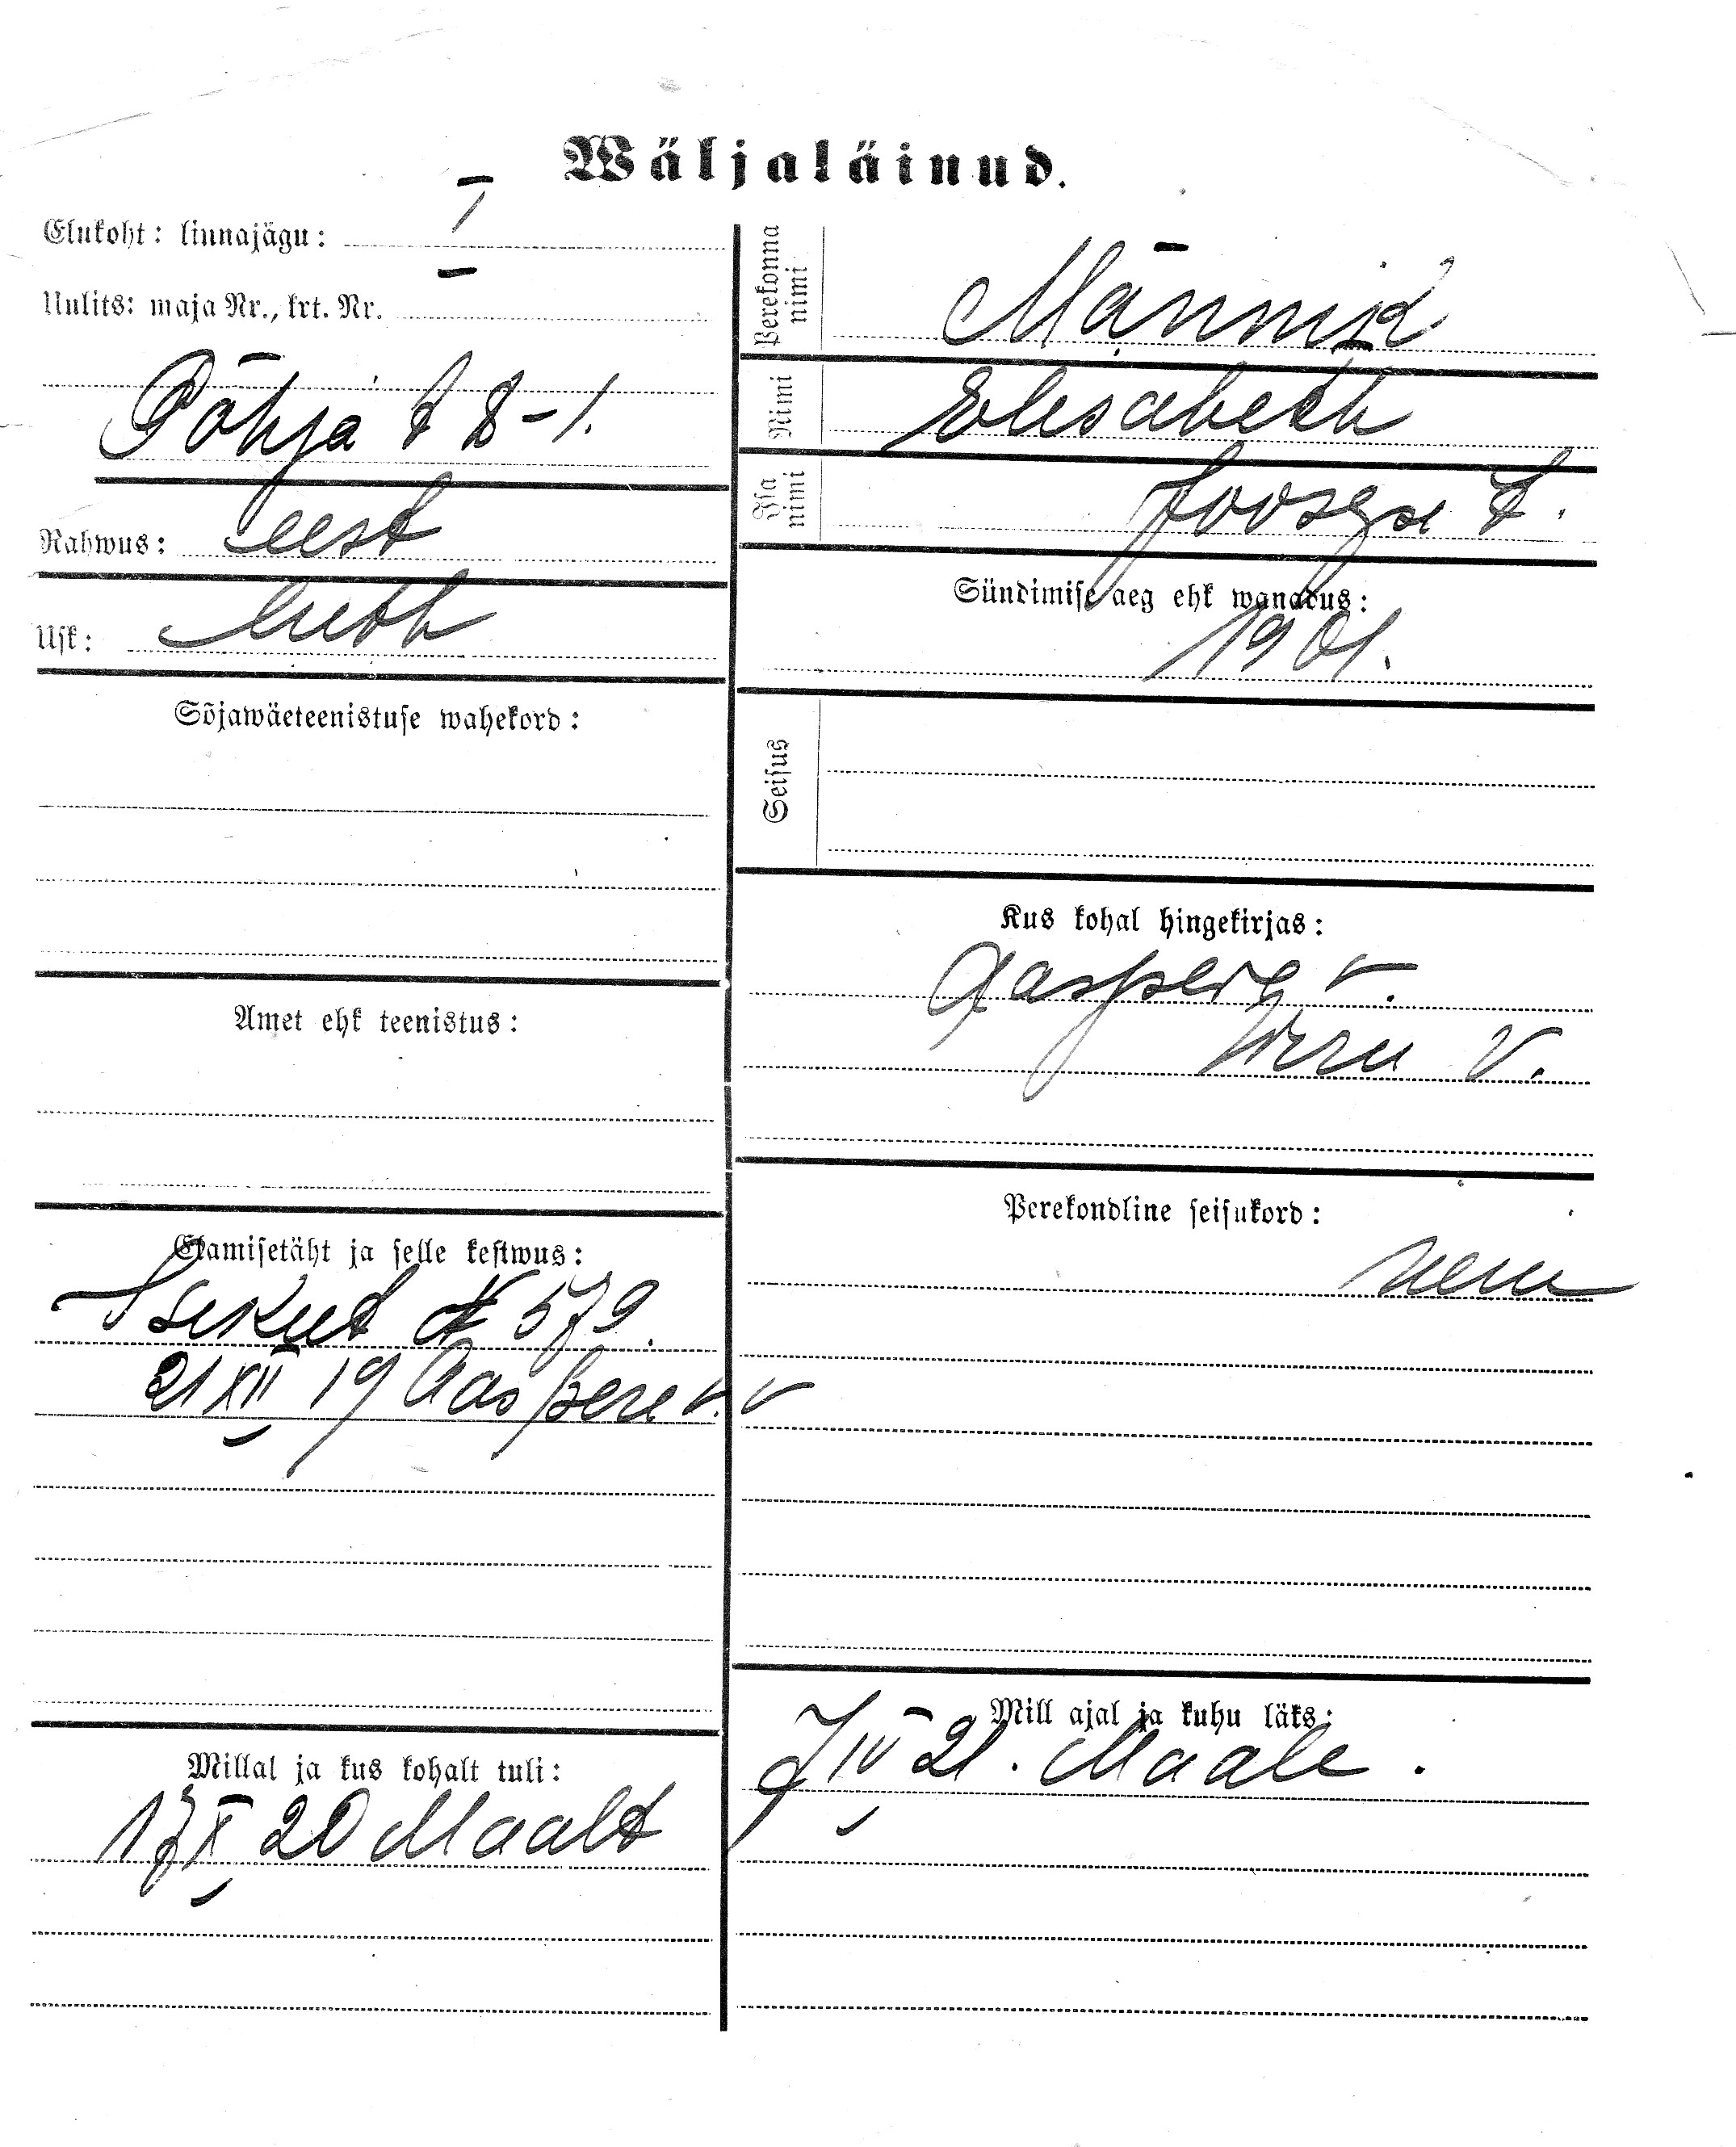 Wäljaläinud.
Elukoht: linnajagu: I
Uulits: maja Nr., krt. Nr.
Põhja t 8-1.
Rahwus: eest
Usk: luth
Sõjawäeteenistuse wahekord:
Amet ehk teenistus:
Elamisetäht ja selle kestwus:
Isikut № 579.
21 XII 19 Aaspere v. v
Millal ja kus kohalt tuli:
17 X 20 Maalt
Perekonna nimi Männik
Nimi Elisabeth
Isa nimi Joosepi t.
Sündimise aeg ehk wanadus:
1901.
Seisus
Kus kohal hingekirjas:
Aaspere v.
Wiru V.
Perekondline seisukord:
Mill ajal ja kuhu läks:
7 IV 21. Maale.